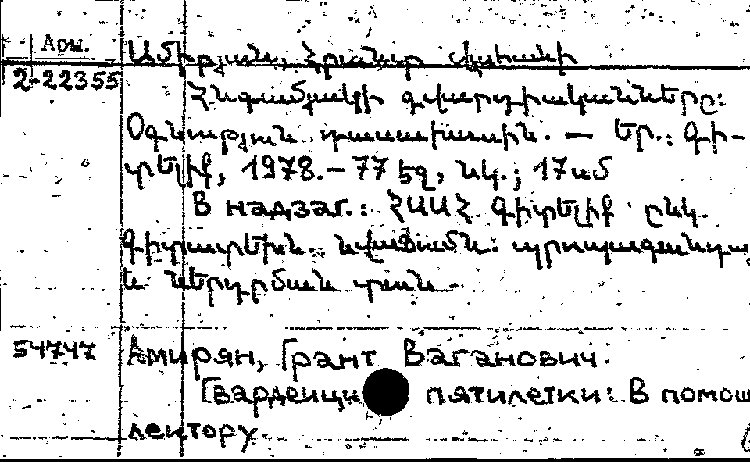 Арм.
2-22355
Ամիրյան, Հրանտ Վահանի
Հնգամյակի գվարդիականները:
Օգնություն դասախոսին. — Եր.: Գի-
տելիք, 1978.-77 էջ, նկ.; 17սմ
В надзаг.: ՀՍՍՀ Գիտելիք ընկ.
Գիտատեխն. նվաճումն. պրոպագանդայ
և ներդրման տուն.
54747
Амирян, Грант Ваганович.
Гвардейцы пятилетки: В помощ
лектору.